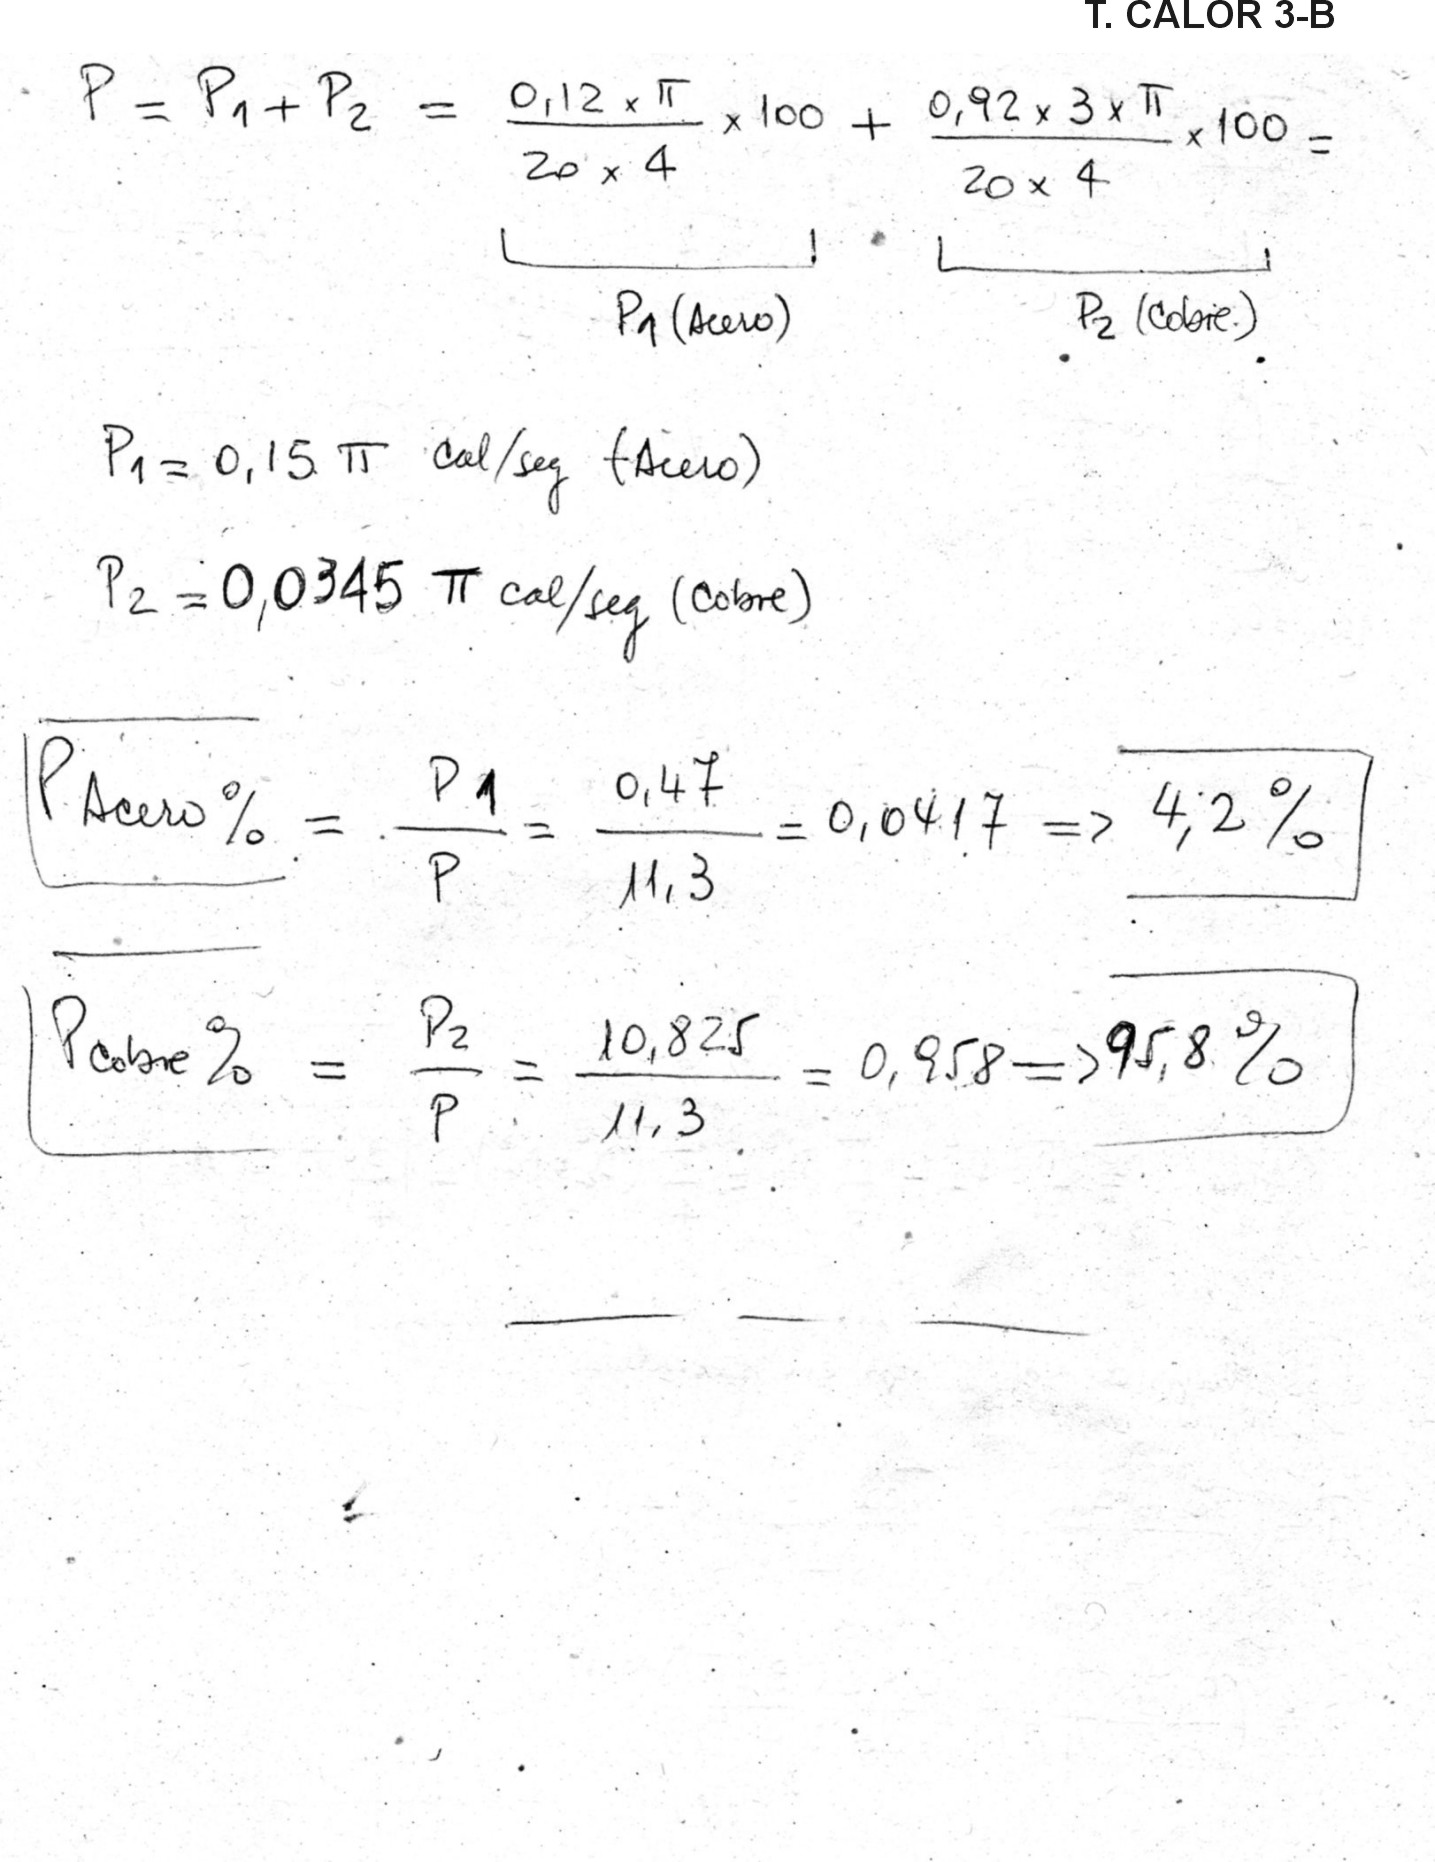 T. CALOR 3-B
P = P1 + P2 = 0,12 x π / 20 x 4 x 100 + 0,92 x 3 x π / 20 x 4 x 100 =
P1 (Acero) P2 (Cobre.)
P1 = 0,15 π cal/seg (Acero)
P2 = 0,0345 π cal/seg (Cobre)
P Acero % = P1 / P = 0,47 / 11,3 = 0,0417 => 4,2 %
P Cobre % = P2 / P = 10,825 / 11,3 = 0,958 => 95,8 %